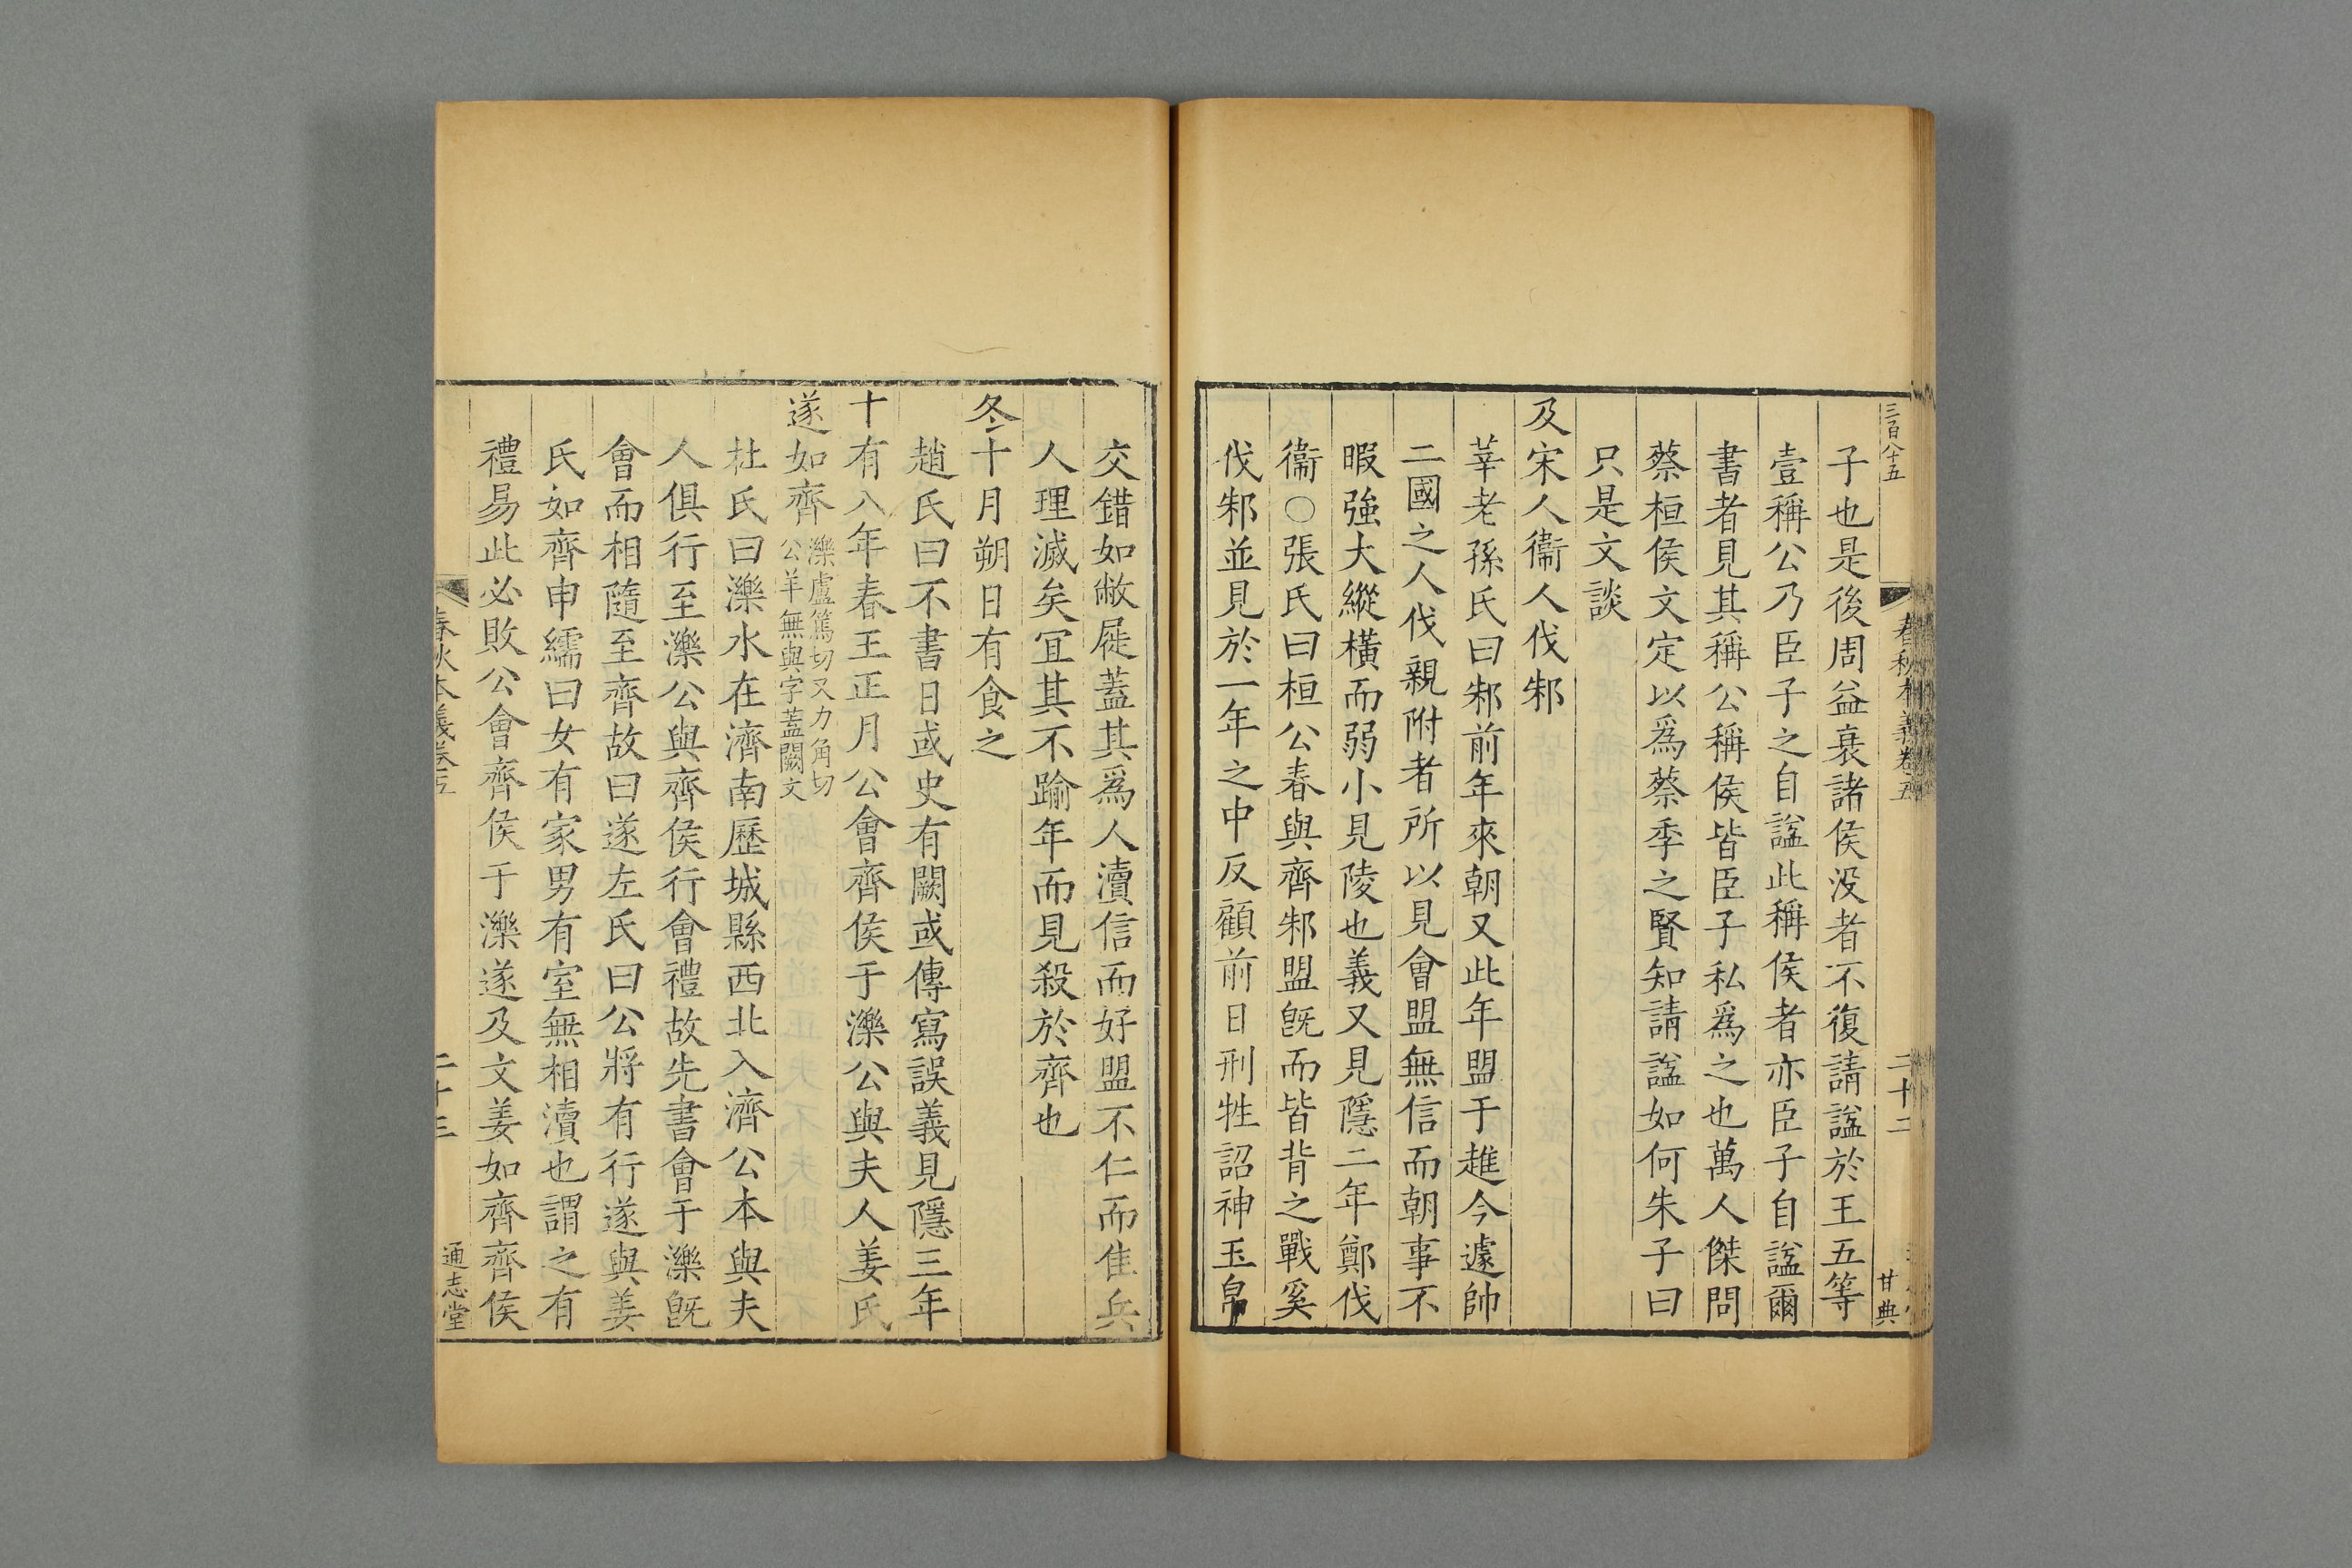 三百八十五
春秋本義卷五
二十二
甘典
子也是後周益衰諸侯没者不復請諡於王五等
壹稱公乃臣子之自諡此稱侯者亦臣子自諡爾
書者見其稱公稱侯皆臣子私爲之也萬人傑問
蔡桓侯文定以爲蔡季之賢知請諡如何朱子曰
只是文談
及宋人衞人伐邾
莘老孫氏曰邾前年來朝又此年盟于趡今遽帥
二國之人伐親附者所以見會盟無信而朝事不
暇強大縱橫而弱小見陵也義又見隱二年鄭伐
衞○張氏曰桓公春與齊邾盟旣而皆背之戰奚
伐邾並見於一年之中反顧前日刑牲詔神玉帛
交錯如敝屣蓋其爲人瀆信而好盟不仁而隹兵
人理滅矣冝其不踰年而見殺於齊也
冬十月朔日有食之
趙氏曰不書日或史有闕或傳寫誤義見隱三年
十有八年春王正月公會齊侯于濼公與夫人姜氏
遂如齊
濼盧篤切又力角切
公羊無與字蓋闕文
杜氏曰濼水在濟南歷城縣西北入濟公本與夫
人俱行至濼公與齊侯行會禮故先書會于濼旣
會而相隨至齊故曰遂左氏曰公將有行遂與姜
氏如齊申繻曰女有家男有室無相瀆也謂之有
禮易此必敗公會齊侯于濼遂及文姜如齊齊侯
春秋本義卷五
二十三
通志堂